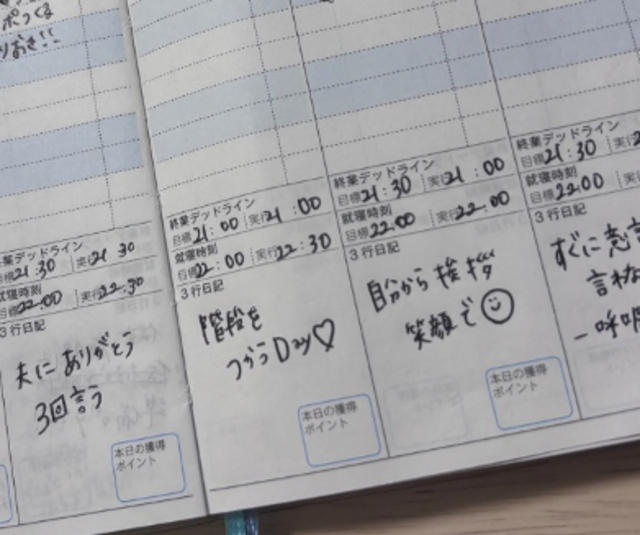 ポつくる
りおき!!
終業デッドライン
目標21:30 実行21 30
就寝時刻
目標22:00 実行22:30
3行日記
夫にありがとう
3回言う
本日の獲得
ポイント
終業デッドライン
目標21:00 実行21:00
就寝時刻
目標22:00 実行22:30
3行日記
階段を
つかうDay♡
本日の獲得
ポイント
終業デッドライン
目標21:30 実行21:00
就寝時刻
目標22:00 実行22:00
3行日記
自分から挨拶
笑顔で☺
本日の獲得
ポイント
終業デッドライン
目標21:30 実
就寝時刻
目標22:00
3行日記
すぐに
言わ
一呼